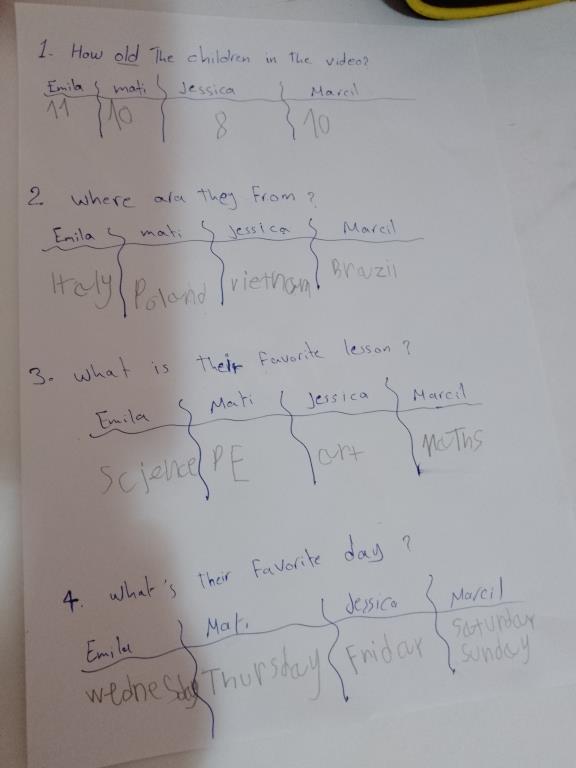 1. How old The children in The video?
Emila mati Jessica Marcil
11 10 8 10
2 Where ara they From ?
Emila mati Jessica Marcil
Italy Poland vietnam Brazil
3. What is Their Favorite lesson ?
Emila Mati Jessica Marcil
Science PE art maths
4. What's Their Favorite day ?
Emila Mati Jessica Marcil
wednesday Thursday Fridar saturdar
sunday